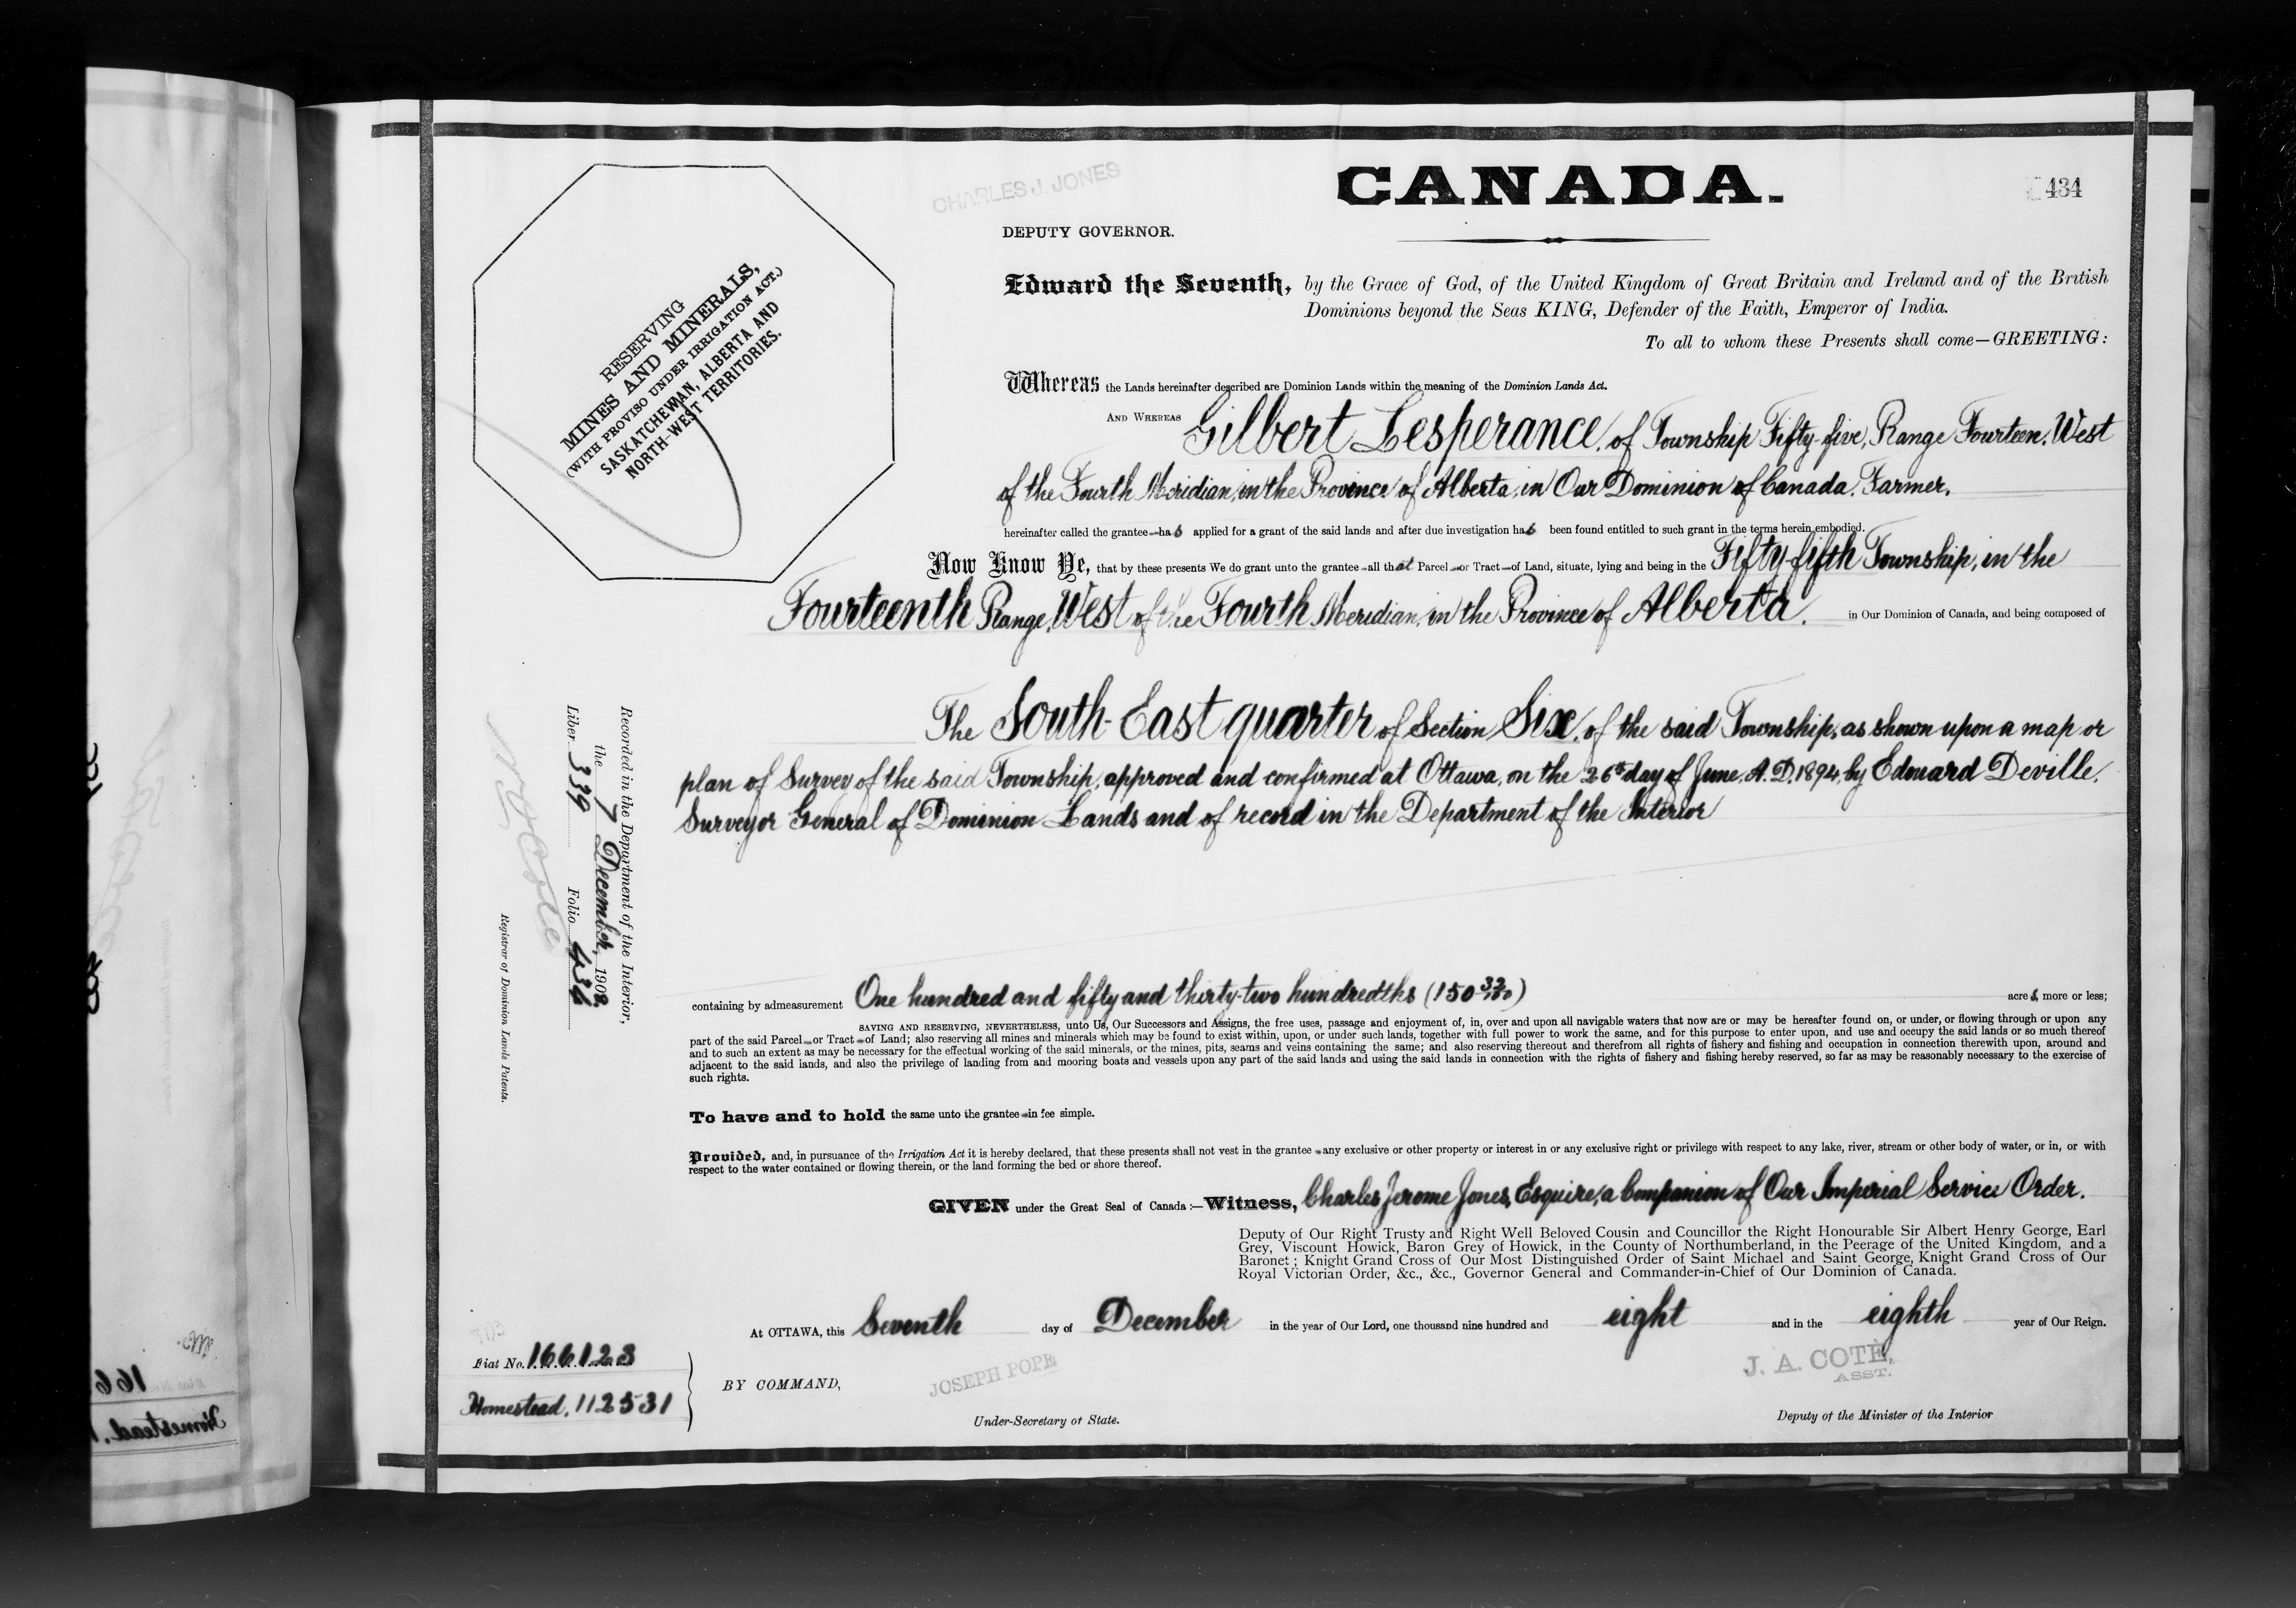 CHARLES J. JONES
CANADA.
434
DEPUTY GOVERNOR.
RESERVING
MINES AND MINERALS,
(WITH PROVISO UNDER IRRIGATION ACT.)
SASKATCHEWAN, ALBERTA AND
NORTH-WEST TERRITORIES.
Edward the Seventh, by the Grace of God, of the United Kingdom of Great Britain and Ireland and of the British
Dominions beyond the Seas KING, Defender of the Faith, Emperor of India.
To all to whom these Presents shall come—GREETING:
Whereas the Lands hereinafter described are Dominion Lands within the meaning of the Dominion Lands Act.
AND WHEREAS Gilbert Lesperance, of Township Fifty-five, Range Fourteen, West
of the Fourth Meridian, in the Province of Alberta, in Our Dominion of Canada. Farmer.
hereinafter called the grantee—has applied for a grant of the said lands and after due investigation has been found entitled to such grant in the terms herein embodied.
Now Know Ye, that by these presents We do grant unto the grantee—all that Parcel—or Tract—of Land, situate, lying and being in the Fifty-fifth Township, in the
Fourteenth Range, West of the Fourth Meridian, in the Province of Alberta. in Our Dominion of Canada, and being composed of
The South-East quarter of Section Six, of the said Township, as shown upon a map or
plan of Survey of the said Township, approved and confirmed at Ottawa, on the 26th day of June, A.D. 1894, by Edouard Deville,
Surveyor General of Dominion Lands and of record in the Department of the Interior
Recorded in the Department of the Interior,
the 7 December, 1908,
Liber 339 Folio 434
N O Cote
Registrar of Dominion Lands Patents.
containing by admeasurement One hundred and fifty and thirty-two hundredths (150 32/100) acres, more or less;
SAVING AND RESERVING, NEVERTHELESS, unto Us, Our Successors and Assigns, the free uses, passage and enjoyment of, in, over and upon all navigable waters that now are or may be hereafter found on, or under, or flowing through or upon any
part of the said Parcel—or Tract—of Land; also reserving all mines and minerals which may be found to exist within, upon, or under such lands, together with full power to work the same, and for this purpose to enter upon, and use and occupy the said lands or so much thereof
and to such an extent as may be necessary for the effectual working of the said minerals, or the mines, pits, seams and veins containing the same; and also reserving thereout and therefrom all rights of fishery and fishing and occupation in connection therewith upon, around and
adjacent to the said lands, and also the privilege of landing from and mooring boats and vessels upon any part of the said lands and using the said lands in connection with the rights of fishery and fishing hereby reserved, so far as may be reasonably necessary to the exercise of
such rights.
To have and to hold the same unto the grantee—in fee simple.
Provided, and, in pursuance of the Irrigation Act it is hereby declared, that these presents shall not vest in the grantee—any exclusive or other property or interest in or any exclusive right or privilege with respect to any lake, river, stream or other body of water, or in, or with
respect to the water contained or flowing therein, or the land forming the bed or shore thereof.
GIVEN under the Great Seal of Canada:—Witness, Charles Jerome Jones, Esquire, a Companion of Our Imperial Service Order.
Deputy of Our Right Trusty and Right Well Beloved Cousin and Councillor the Right Honourable Sir Albert Henry George, Earl
Grey, Viscount Howick, Baron Grey of Howick, in the County of Northumberland, in the Peerage of the United Kingdom, and a
Baronet; Knight Grand Cross of Our Most Distinguished Order of Saint Michael and Saint George, Knight Grand Cross of Our
Royal Victorian Order, &c., &c., Governor General and Commander-in-Chief of Our Dominion of Canada.
At OTTAWA, this Seventh day of December in the year of Our Lord, one thousand nine hundred and eight and in the eighth year of Our Reign.
Fiat No. 166123
Homestead. 112531
BY COMMAND,
JOSEPH POPE
Under-Secretary of State.
J. A. COTÉ,
ASST.
Deputy of the Minister of the Interior